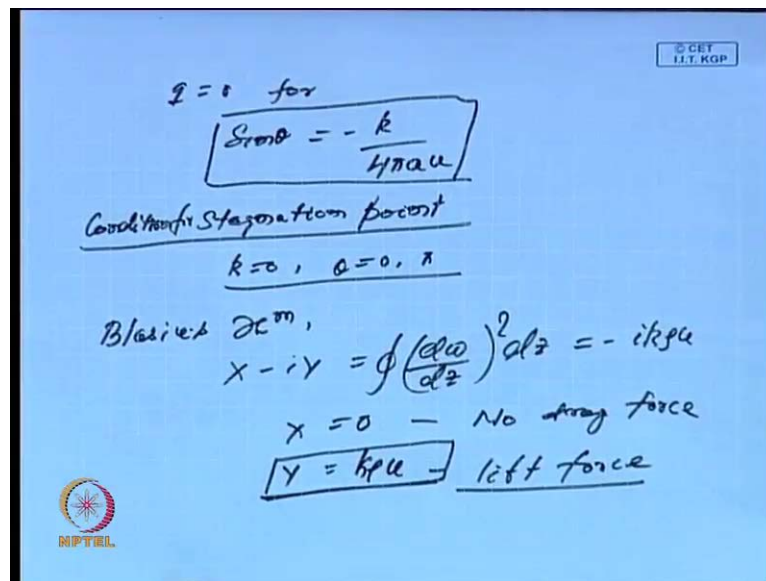 © CET
I.I.T. KGP
q = 0 for
Sinθ = - k / 4πau
Condition for Stagnation point
k=0, θ=0, π
Blasius Th^m,
X - iY = ∮ (dω/dz)² dz = - ikρu
X = 0 - No drag force
Y = kρu - lift force
NPTEL